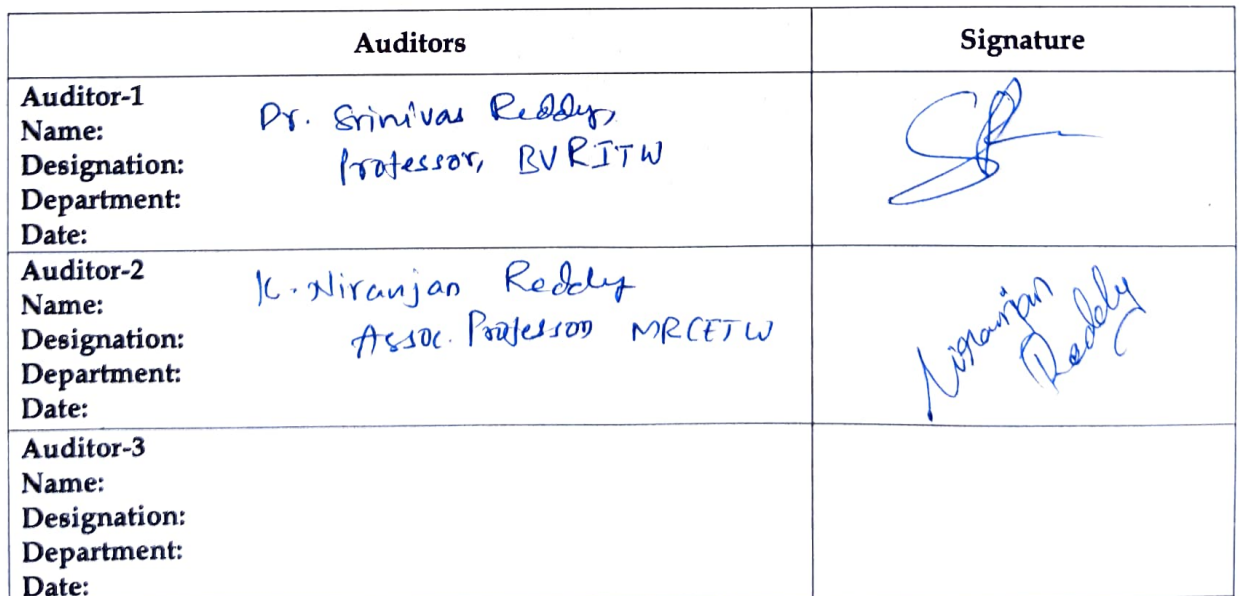 Auditors Signature
Auditor-1
Name: Dr. Srinivas Reddy,
Designation: Professor, BVRITW
Department:
Date:
Auditor-2
Name: K. Niranjan Reddy
Designation: Assoc. Professor MRCETW
Department:
Date:
Niranjan
Reddy
Auditor-3
Name:
Designation:
Department:
Date: